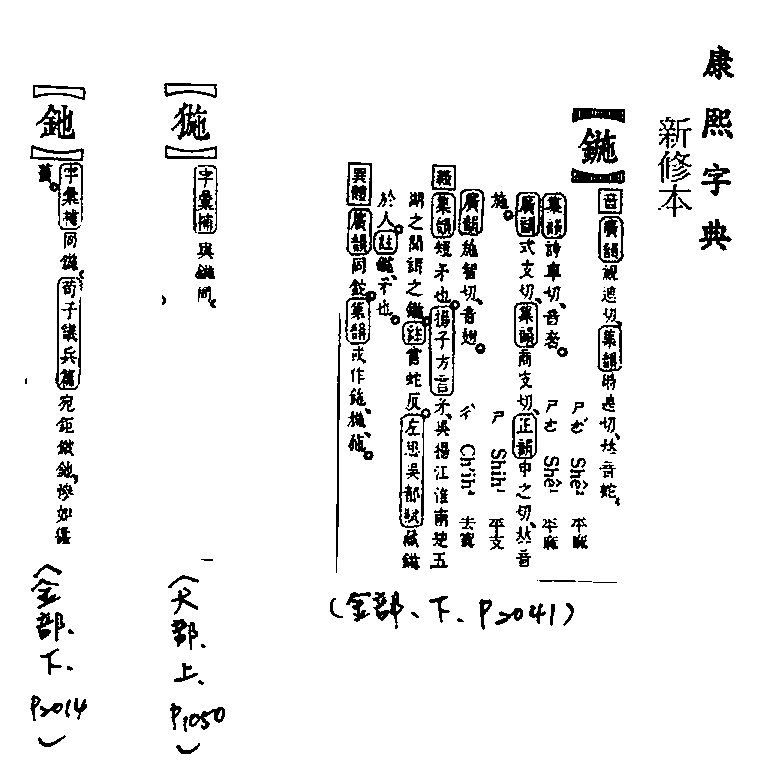 康熙字典
新修本
【鍦】
音 廣韻 視遮切、集韻 時遮切、𠀤音蛇。
ㄕㄜˊ Shê² 平麻
集韻 詩車切、音奢。
ㄕㄜ Shê¹ 平麻
廣韻 式支切、集韻 商支切、正韻 申之切、𠀤音
施。
ㄕ Shih¹ 平支
廣韻 施智切、音翅。
ㄔˋ Ch'ih⁴ 去寘
義 集韻 短矛也。揚子方言 矛、吳揚江淮南楚五
湖之間謂之鍦。註 嘗蛇反。左思吳都賦 藏鍦
於人。註 鍦、矛也。
異體 廣韻 同鉈。集韻 或作
(金部、下、P2041)
字彙補 與鍦同。
(犬部、上、P1050)
【釶】
字彙補 同鍦。荀子議兵篇 宛鉅鐵釶、慘如蜂
蠆。
(金部、下、P2014)